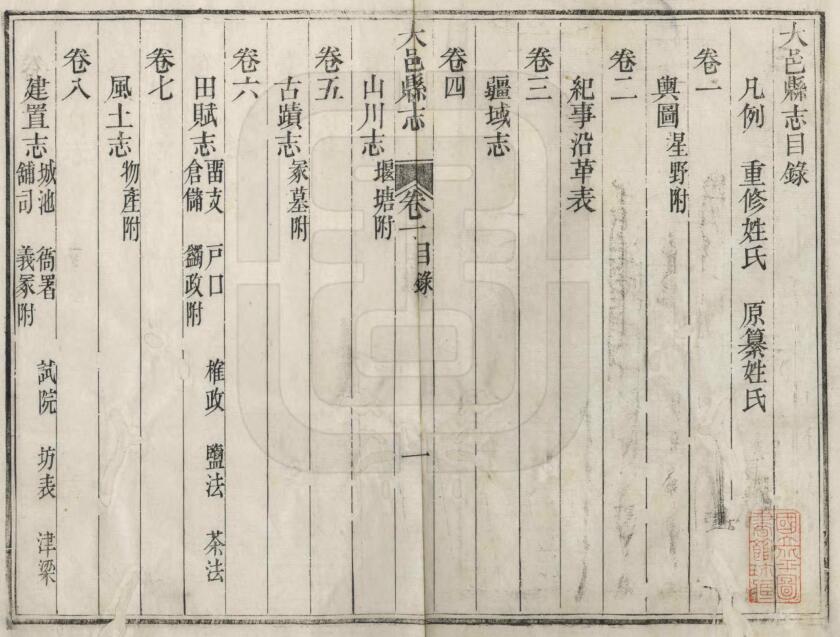 大邑縣志目錄
凡例 重修姓氏 原纂姓氏
卷一
輿圖 星野附
卷二
紀事沿革表
卷三
疆域志
卷四
大邑縣志 卷一目錄 一
山川志 堰塘附
卷五
古蹟志 冢墓附
卷六
田賦志 畱支 戶口 榷政 鹽法 茶法
倉儲 蠲政附
卷七
風土志 物產附
卷八
建置志 城池 衙署 試院 坊表 津梁
舖司 義冢附